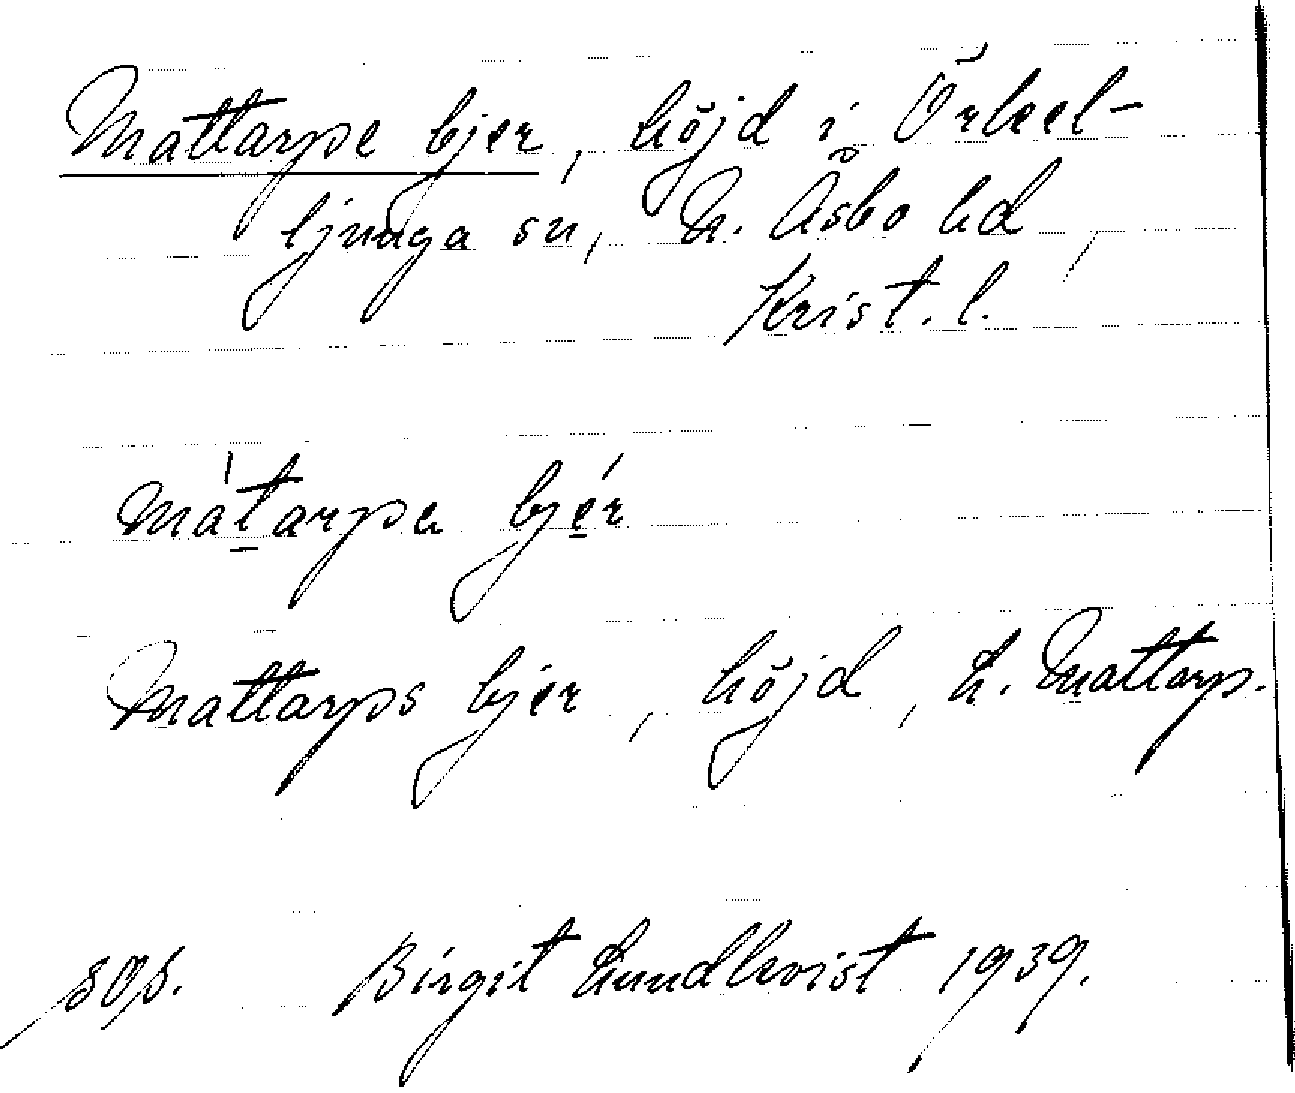 Mattarpe bjer, höjd i Örkel-
ljunga sn, N. Åsbo hd,
Krist. l.
mátarpe bjér
Mattarps bjer, höjd, t. Mattarp.
Birgit Lundkvist 1939.